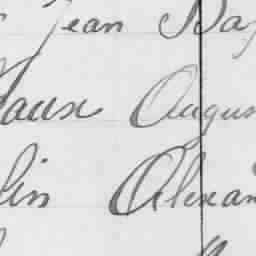 Jean Bap
aux Augus
lin Alexan